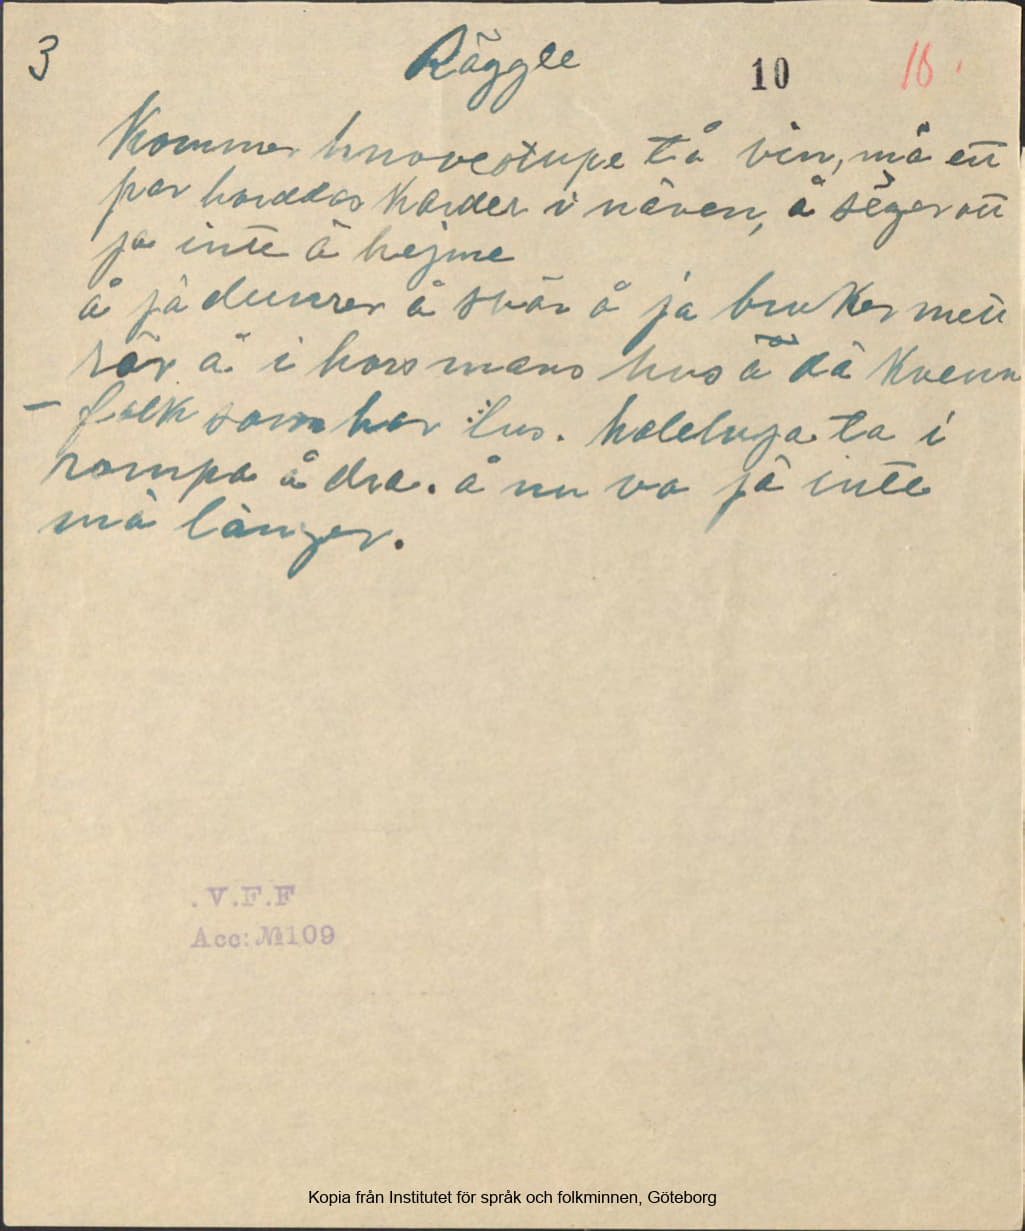 3 Räggle 10 16.
Kommer hnovestupe tå vin, må ett
par harddas karder i näven, å säger att
ja inte ä hejme
å jä dunrer å svär å ja bruker mett
rör å i hars mans hus ä då kvenn
- folk som har lus. haleluja ta i
rompa å dra. å nu va jä inte
må länger.
. V.F.F
Acc: № 109
Kopia från Institutet för språk och folkminnen, Göteborg